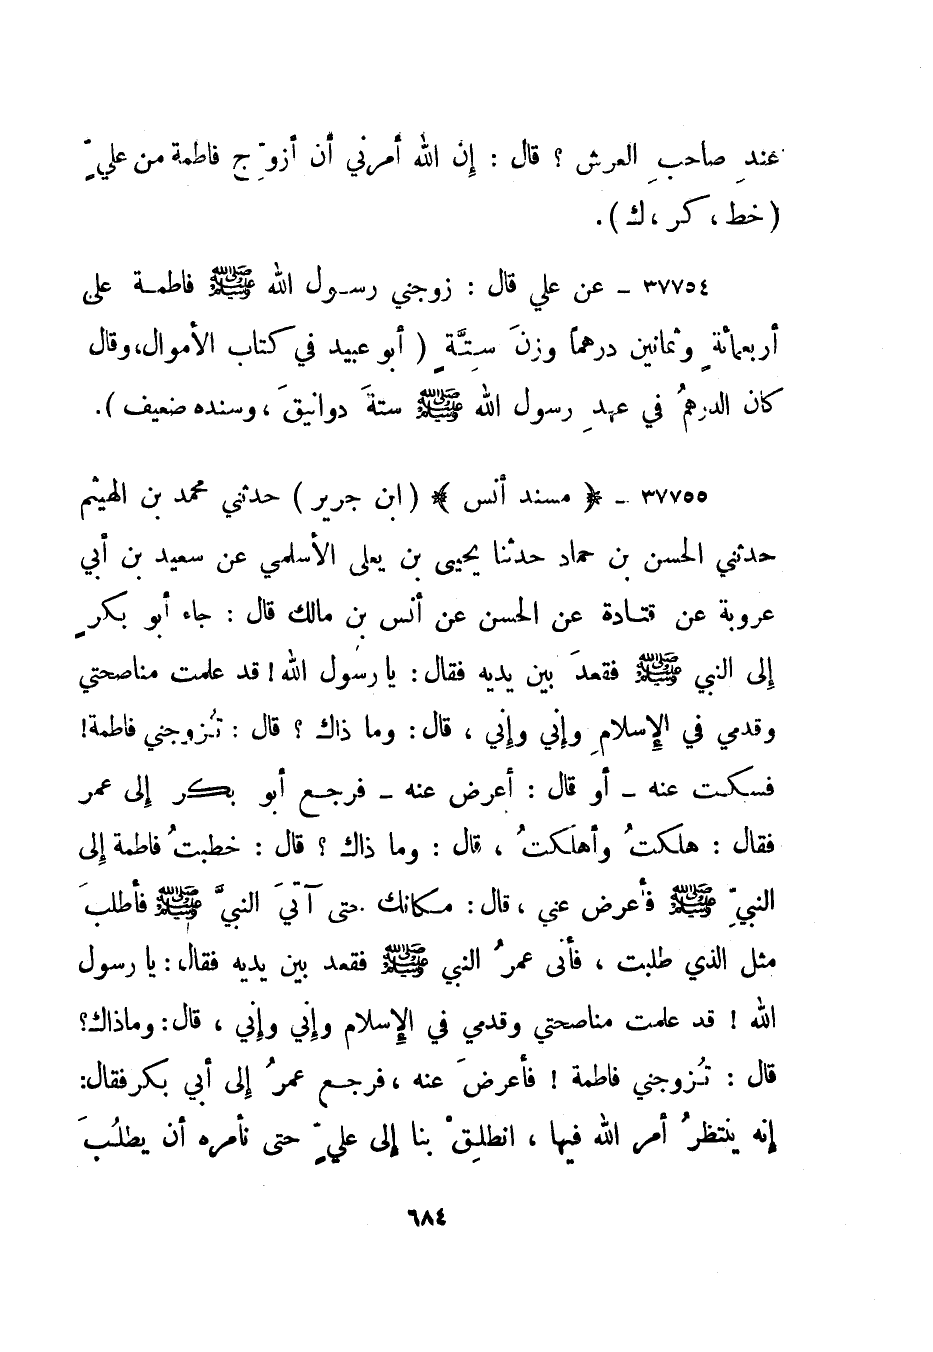 عندِ صاحبِ العرش ؟ قال : إن الله أمرني أن أزوِّج فاطمة من عليٍّ
(خط ، كر ، ك) .
٣٧٧٥٤ ـ عن علي قال : زوجني رسول الله ﷺ فاطمة على
أربعمائةٍ وثمانين درهماً وزنَ ستَّةٍ ( أبو عبيد في كتاب الأموال، وقال
كان الدرهمُ في عهدِ رسول الله ﷺ ستةَ دوانيقَ ، وسنده ضعيف ) .
٣٧٧٥٥ ـ ﴿ مسند أنس ﴾ ( ابن جرير ) حدثني محمد بن الهيثم
حدثني الحسن بن حماد حدثنا يحيى بن يعلى الأسلمي عن سعيد بن أبي
عروبة عن قتادة عن الحسن عن أنس بن مالك قال : جاء أبو بكرٍ
إلى النبي ﷺ فقعدَ بين يديه فقال : يا رسول الله ! قد علمت مناصحتي
وقدمي في الإسلامِ وإني وإني ، قال : وما ذاك ؟ قال : تُزوجني فاطمة!
فسكت عنه ـ أو قال : أعرض عنه ـ فرجع أبو بكر إلى عمر
فقال : هلكتُ وأهلكتُ ، قال : وما ذاك ؟ قال : خطبتُ فاطمة إلى
النبيِّ ﷺ فأعرض عني ، قال : مكانك حتى آتيَ النبيَّ ﷺ فأطلبَ
مثل الذي طلبت ، فأتى عمرُ النبي ﷺ فقعد بين يديه فقال : يا رسول
الله ! قد علمت مناصحتي وقدمي في الإسلام وإني وإني ، قال : وماذاك؟
قال : تُزوجني فاطمة ! فأعرضَ عنه ، فرجع عمرُ إلى أبي بكر فقال:
إنه ينتظرُ أمر الله فيها ، انطلِقْ بنا إلى عليٍّ حتى نأمره أن يطلُبَ
٦٨٤